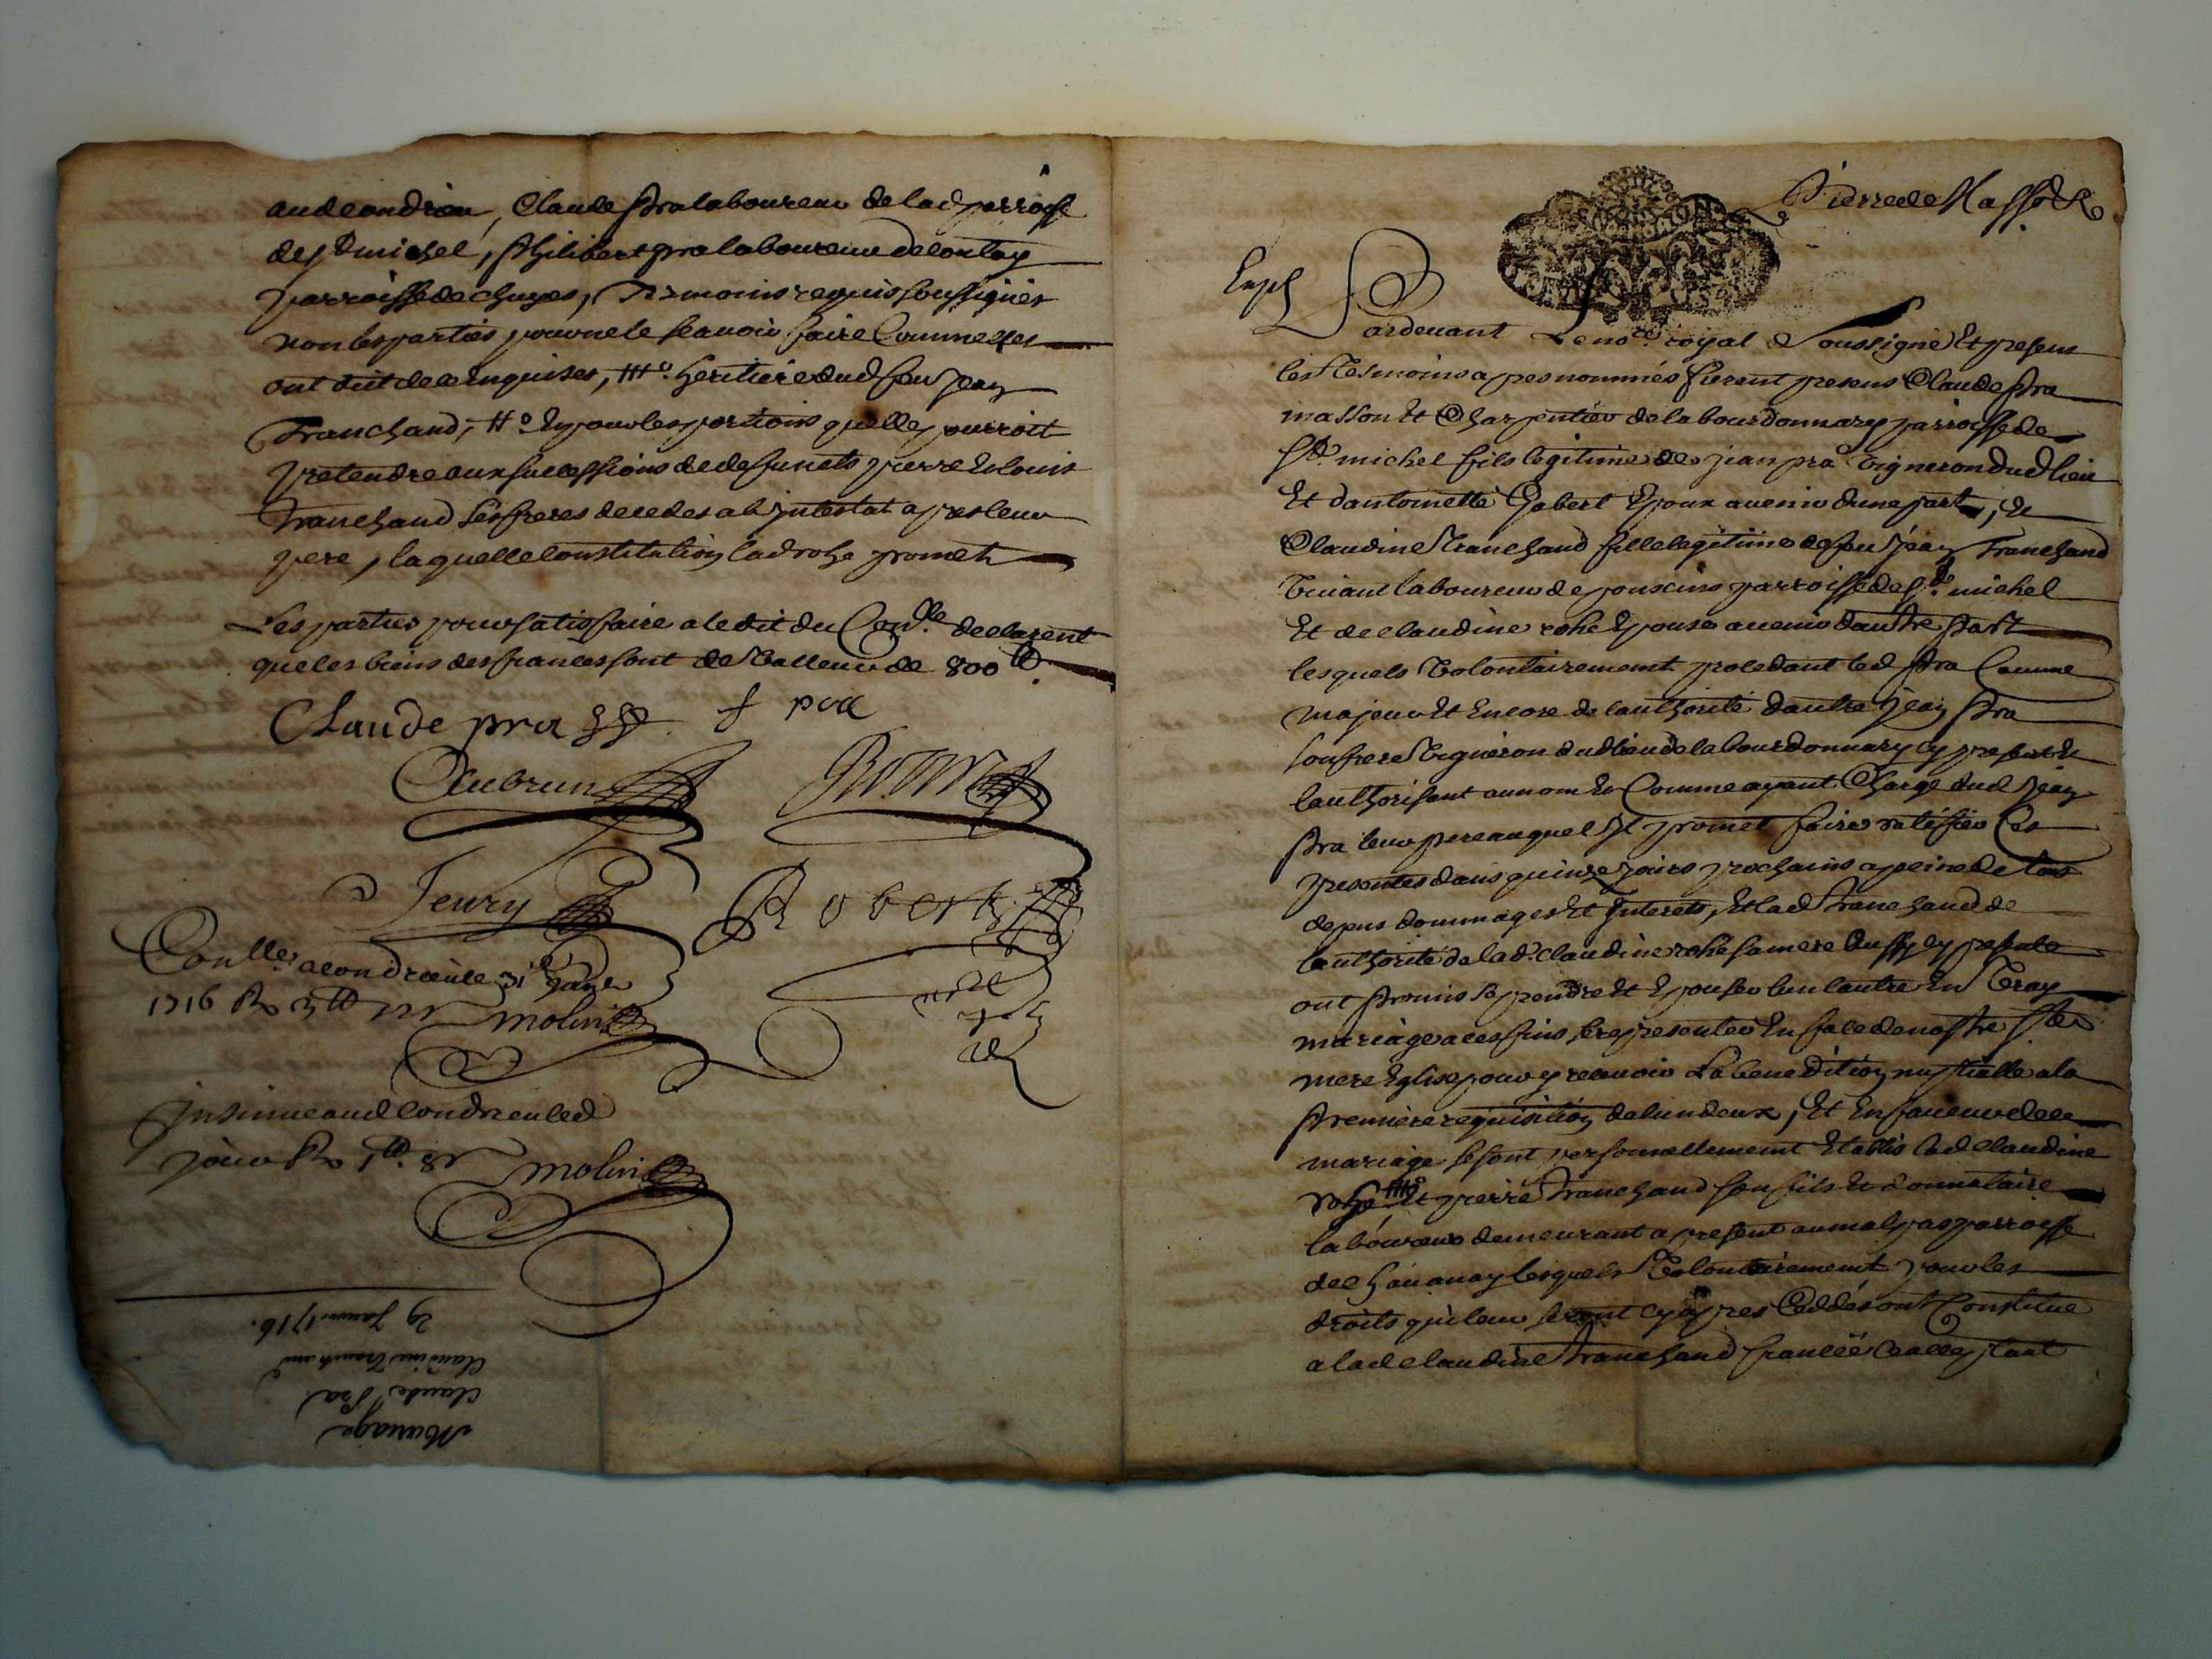 audcondrieu, Claude pra laboureur de lad parroisse
de st michel, philibert pra laboureur de
parroisse de chuyes, Tesmoins requis soussignés
non les parties pour ne le scauoir faire Comme elles
ont dit de ce enquises, heritiere dud feu jean
Tranchand, Et pour les portions quelle pourroit
pretendre aux successions de defuncts pierre Et louis
tranchand ses freres decedes ab jntestat apres leur
pere, laquelle Constitution lad rohe promet
Les parties pour satisfaire a ledit du Con.lle declarent
que les biens des fiances sont de Valleur de 800 ᵗᵗ.
Claude pra
pra
Aubrun
Jeury
Robert
Con.lle a condrieu le 31e janu
1716 R 3 tt
molin
jnsinue aud condrieu led
jour R
molin
Mariage
Claude Pra
Claudine Tranchand
29 Januier 1716.
Pierre de Masso
Expd
Pardeuant Le no.re royal Soussigné Et presens
les Tesmoins apres nommés furent presens Claude pra
masson Et Charpentier de la bourdonnary parroisse de
st. michel fils legitime de jean pra Vigneron dud lieu
Et dantoinette Gabert Epoux auenir dune part, Et
Claudine Tranchand fille legitime de feu jean Tranchand
Viuant laboureur de parroisse de st. michel
Et de claudine rohe Epouse auenir dautre part
lesquels Volontairement procedant led pra Comme
majeur Et Encore de lauthorité dautre jean pra
son frere Vigneron dud lieu de la bourdonnary cy present Et
lauthorisant au nom Et Comme ayant Charge dud jean
pra leur pere auquel jl promet faire ratiffier Ces
presentes dans quinze jours prochains a peine de tous
depens dommages Et jnterets, Et lad Tranchand de
lauthorité de lad. claudine rohe sa mere aussy cy presente
ont promis se prendre Et Epouser lun lautre En Vray
mariage a ces fins se representer En face de nostre ste
mere Eglise pour y receuoir La benediction nuptialle a la
premiere requisition de lun deux, Et En faueur de ce
mariage se sont personnellement Etablis lad claudine
rohe Et pierre Tranchand son fils Et donnataire
laboureur demeurant a present au malpas parroisse
de Chauanay lesquels Volontairement pour les
droits qui leur seront cy apres Ceddés ont Constitué
a lad claudine Tranchand fiancée Contant